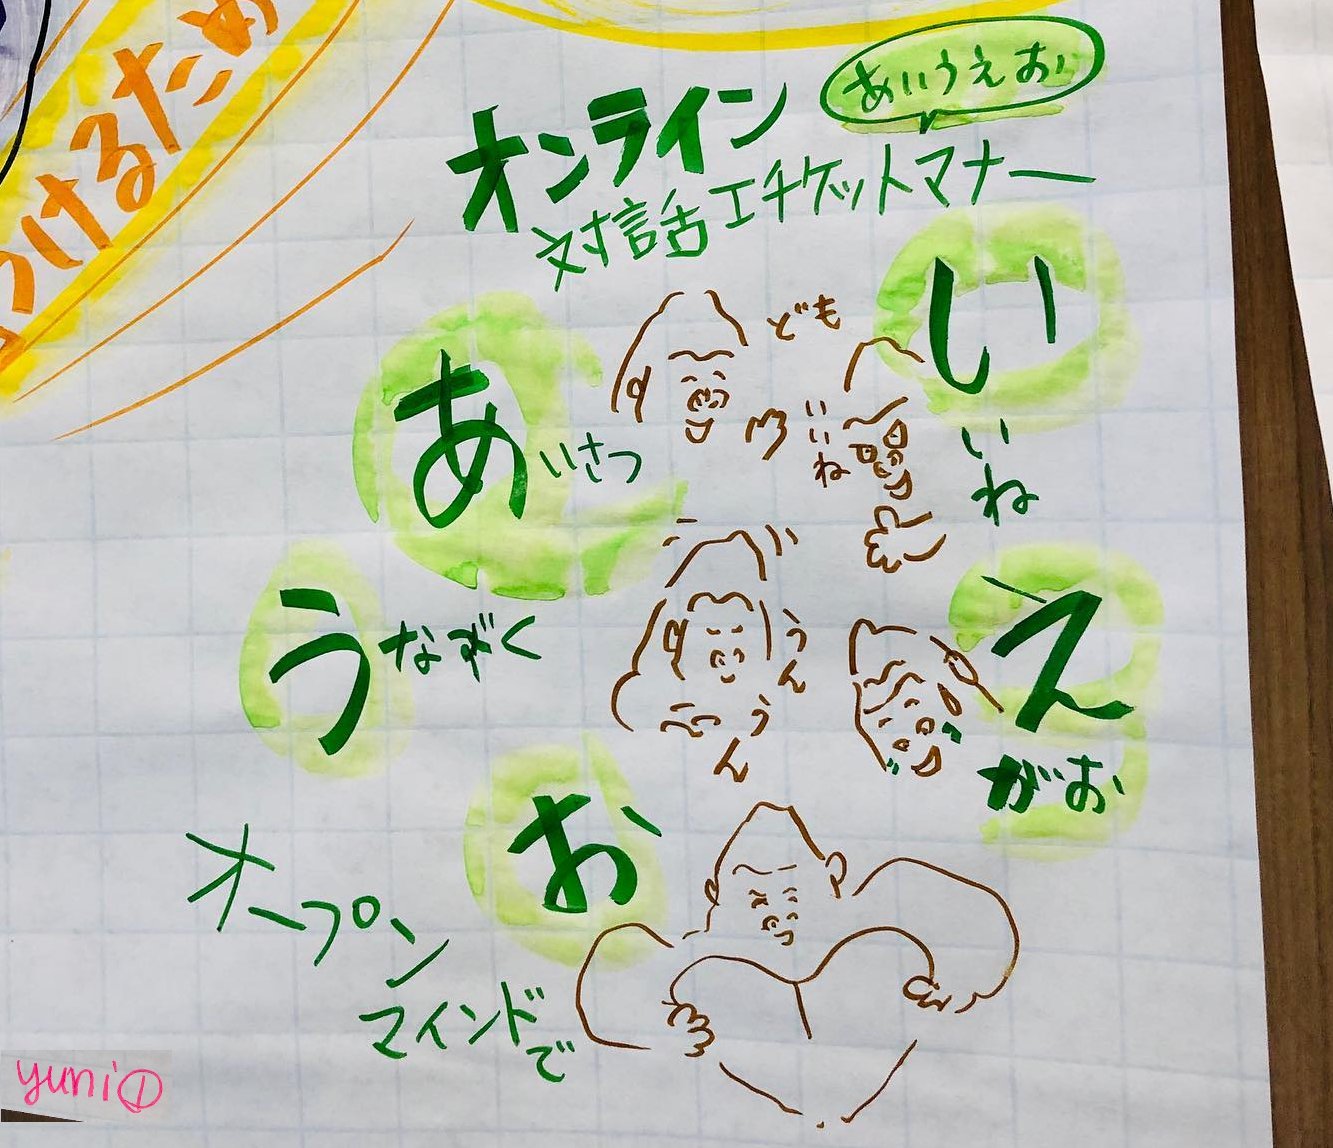 つけるため
あいうえお
オンライン
対話エチケットマナー
あ
いさつ
ども
い
いね
いいね
う
なずく
うん
うん
え
がお
お
オープン
マインドで
yuni①